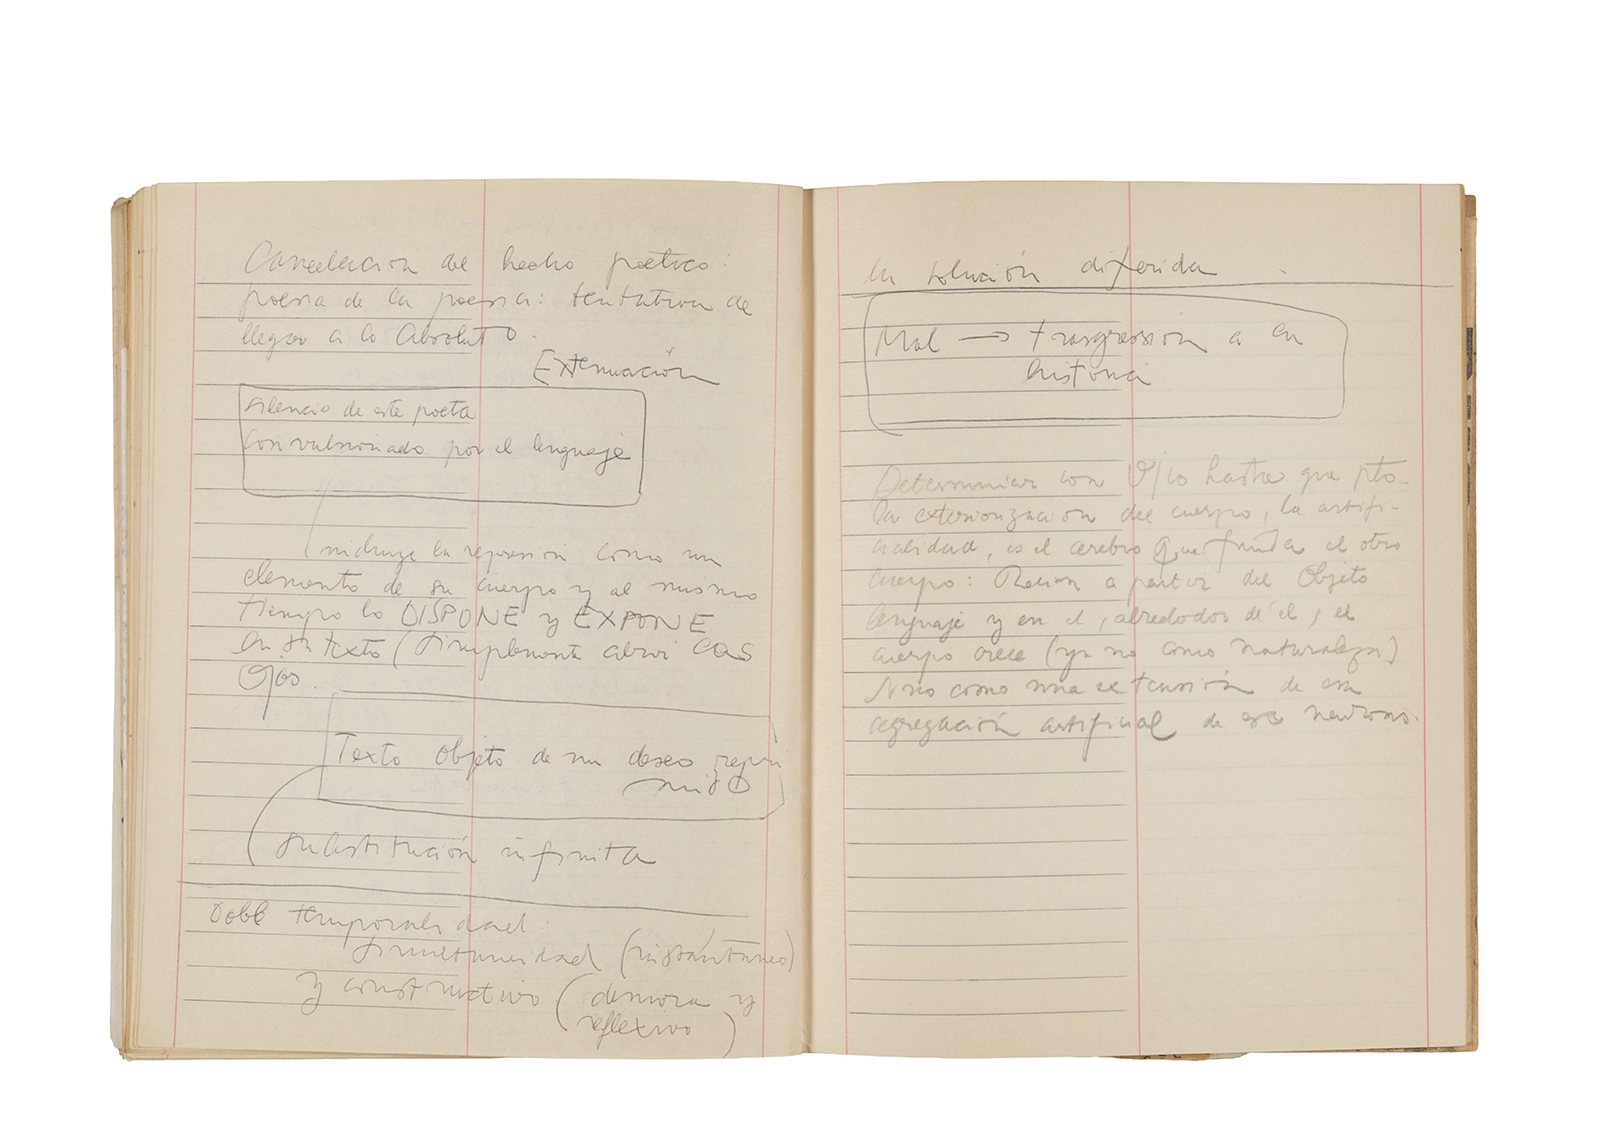 Cancelación del hecho poético:
poesia de la poesia: tentativa de
llegar a lo Absoluto.
Extenuación
silencio de este poeta
convulsionado por el lenguaje
la represión como un
elemento de su cuerpo y al mismo
tiempo lo DISPONE y EXPONE
en su texto (simplemente abrir los
ojos.
Texto objeto de un deseo repri
mido
sustitución infinita
Doble temporalidad:
simultaneidad (instantáneo)
y constructivo (demora y
reflexivo)
la solución diferida
Mal → trasgresión a la
historia
Determinar con hasta que pto.
la exteriorización del cuerpo, la artifi-
cialidad, es el cerebro que funda el otro
cuerpo: a partir del Objeto
lenguaje y en el, alrededor de él, el
cuerpo crece (ya no como naturaleza)
sino como una extensión de esa
agregación artificial de ese neurosis.